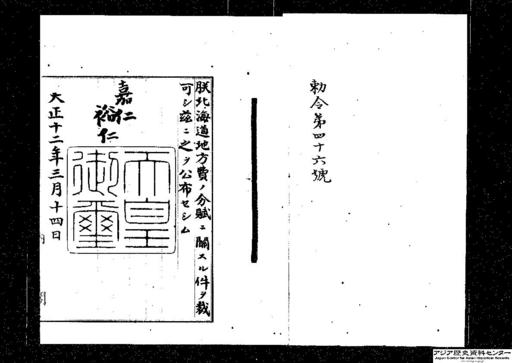 勅令第四十六號
朕北海道地方費ノ分賦ニ關スル件ヲ裁
可シ茲ニ之ヲ公布セシム
嘉仁
裕仁
天皇
御璽
大正十二年三月十四日
アジア歴史資料センター
Japan Center for Asian Historical Records